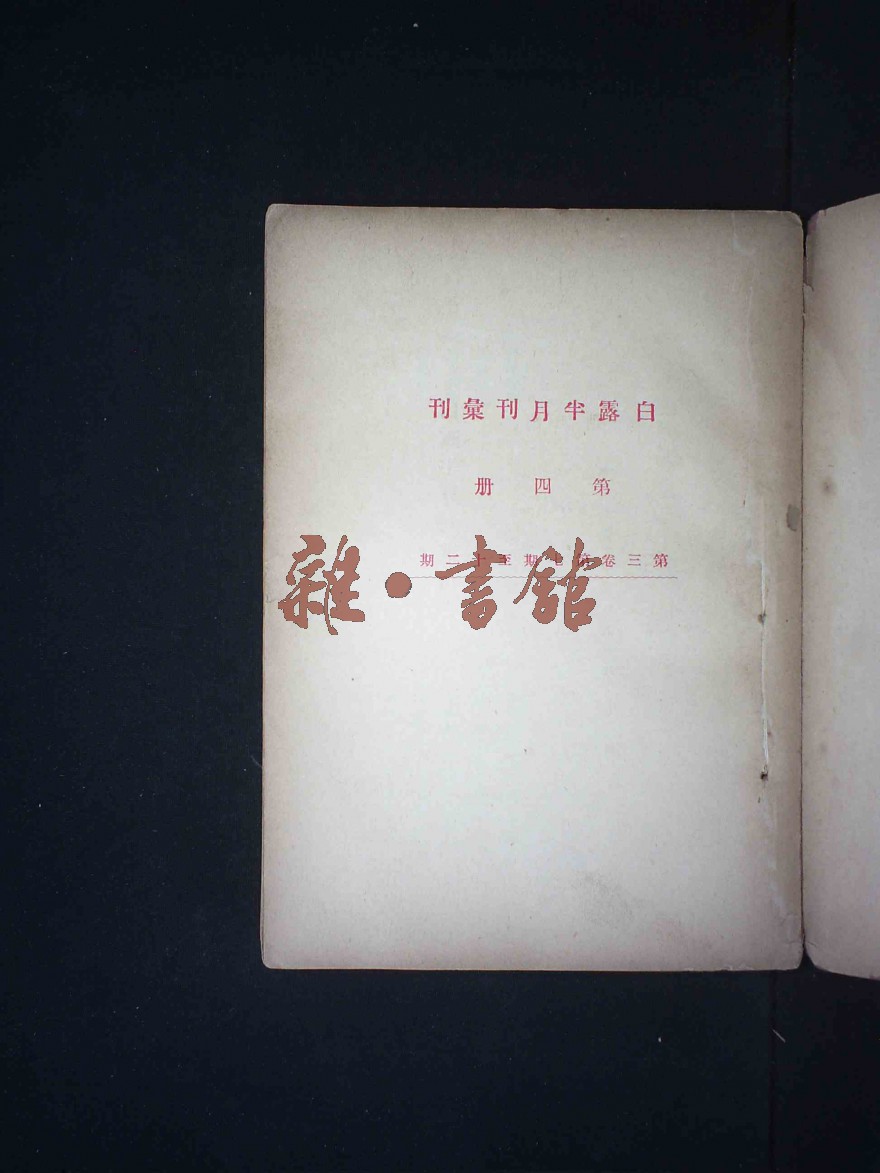 白露半月刊彙刊
第四册
第三卷第七期至十二期
雜·書館